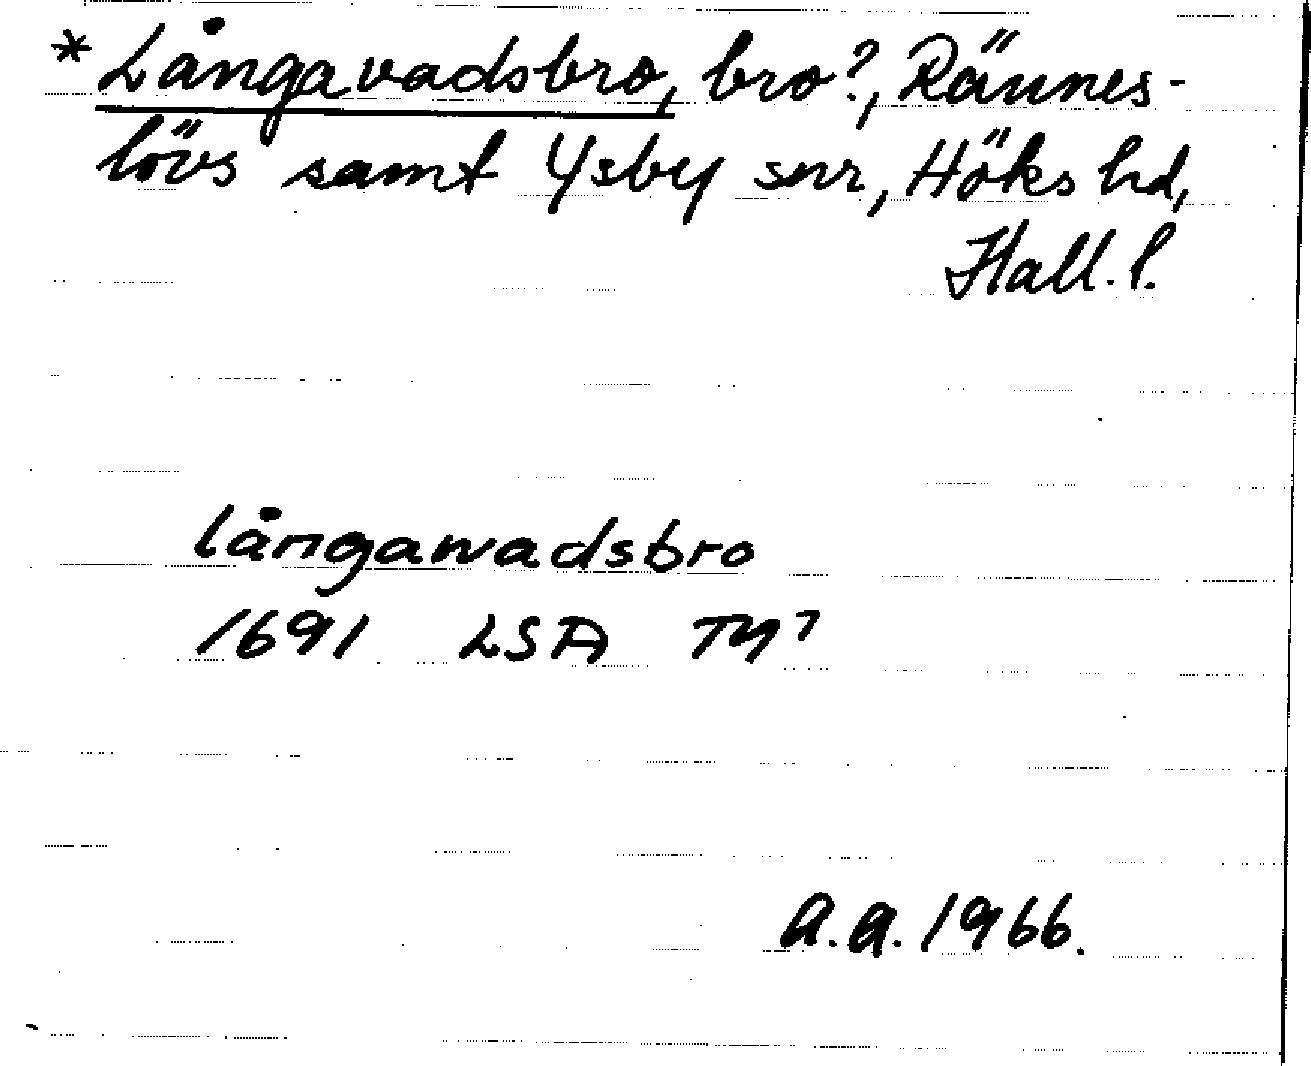 *Långavadsbro, bro?, Rännes-
lövs samt Ysby snr, Höks hd,
Hall. l.
långawadsbro
1691 LSA
a.a. 1966.